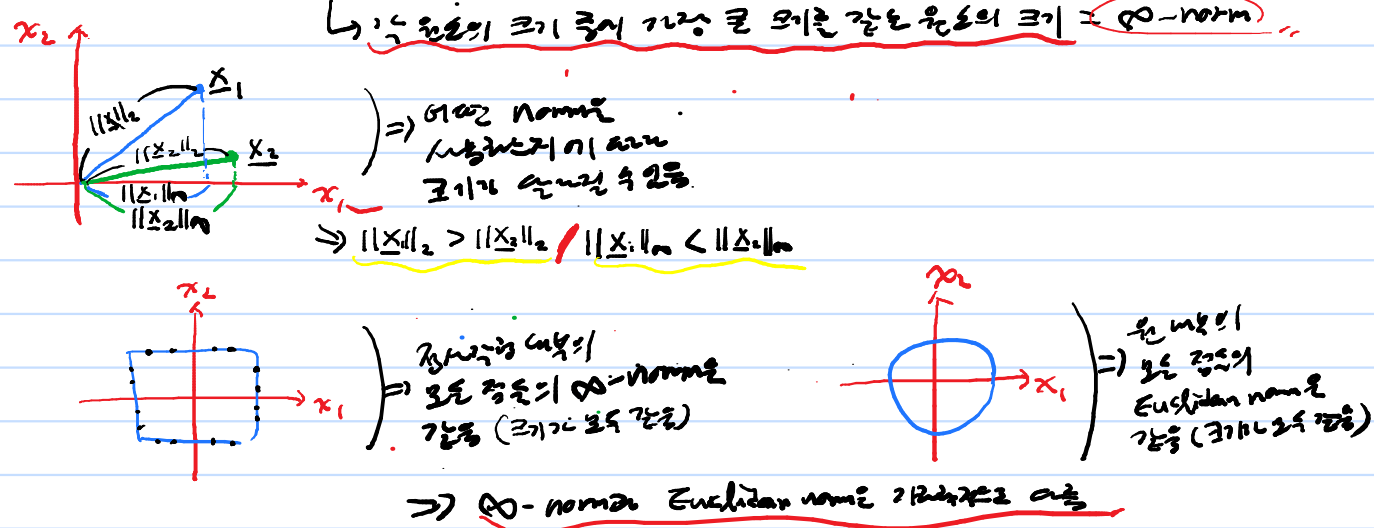 ↳ 각 원소의 크기 중에 가장 큰 크기를 갖는 원소의 크기 = ∞-norm
x₂
x₁
||x₁||₂
||x₂||₂
x₂
||x₁||∞
x₁
||x₂||∞
⇒ 어떤 norm을
사용하는지에 따라
크기가 달라질 수 있음.
⇒ ||x₁||₂ > ||x₂||₂ / ||x₁||∞ < ||x₂||∞
x₂
x₁
⇒ 정사각형 내부의
모든 점들의 ∞-norm은
같음 (크기가 모두 같음)
x₂
x₁
⇒ 원 내부의
모든 점들의
Euclidean norm은
같음 (크기가 모두 같음)
⇒ ∞-norm과 Euclidean norm은 기하학적으로